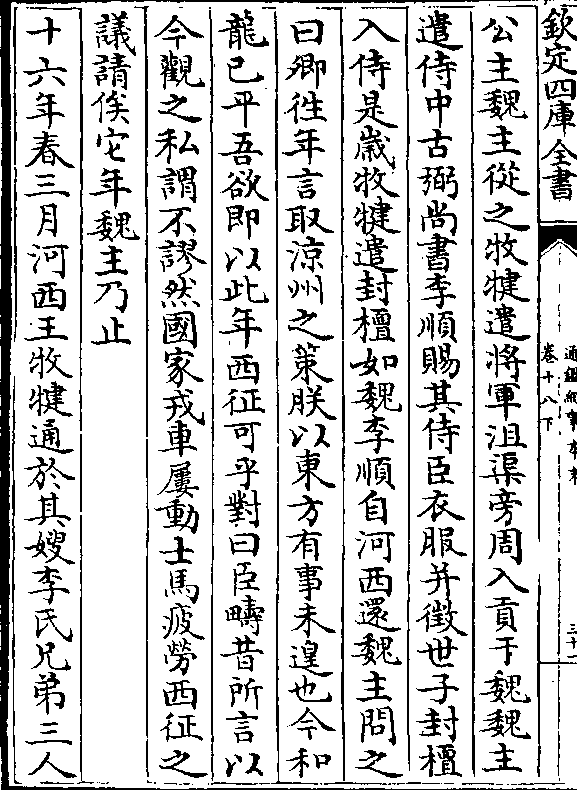 欽定四庫全書
通鑑紀事本末
卷十八下
三十一
公主魏主從之牧犍遣將軍沮渠旁周入貢于魏魏主
遣侍中古弼尚書李順賜其侍臣衣服并徵世子封檀
入侍是歲牧犍遣封檀如魏李順自河西還魏主問之
曰卿徃年言取涼州之策朕以東方有事未遑也今和
龍已平吾欲即以此年西征可乎對曰臣疇昔所言以
今觀之私謂不謬然國家戎車屢動士馬疲勞西征之
議請俟它年魏主乃止
十六年春三月河西王牧犍通於其嫂李氏兄弟三人